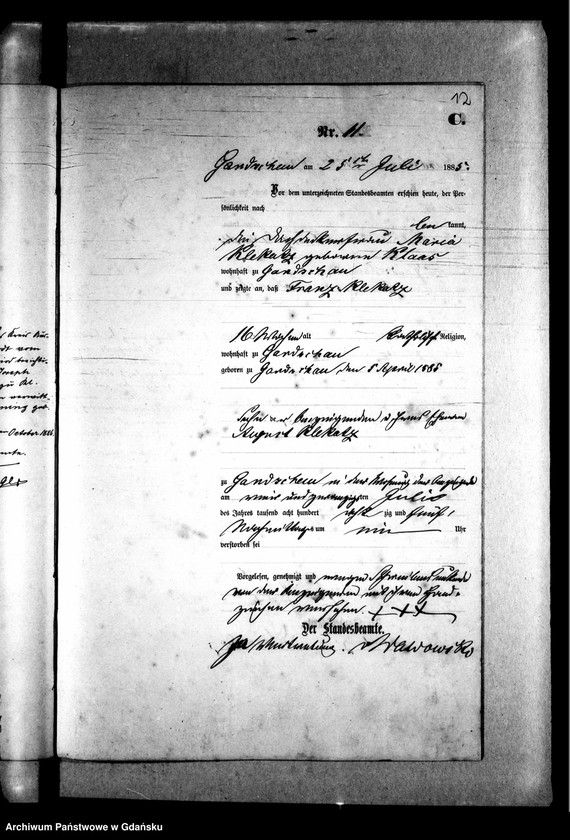 12
C.
Nr. 11.
Gardschau am 25ten Juli 1885.
Vor dem unterzeichneten Standesbeamten erschien heute, der Per-
sönlichkeit nach
kannt,
die Maria
Klekatz geborene Klaas
wohnhaft zu Gardschau
und zeigte an, daß Franz Klekatz
16 Wochen alt katholischer Religion,
wohnhaft zu Gardschau
geboren zu Gardschau den 5 April 1885
Sohn der Anzeigenden u ihres Ehemann
August Klekatz
zu Gardschau in der Wohnung der Anzeigende
am vier und zwanzigsten Julio
des Jahres tausend acht hundert acht zig und fünf,
Nachmittags um ein Uhr
verstorben sei
Vorgelesen, genehmigt und wegen Schreibensunkunde
von der Anzeigenden mit ihrem Hand-
zeichen versehen. +++
Der Standesbeamte.
In Vertretung.
October 1886
Archiwum Państwowe w Gdańsku